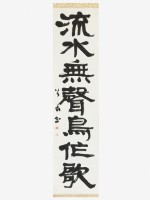 流水無聲鳥作歌